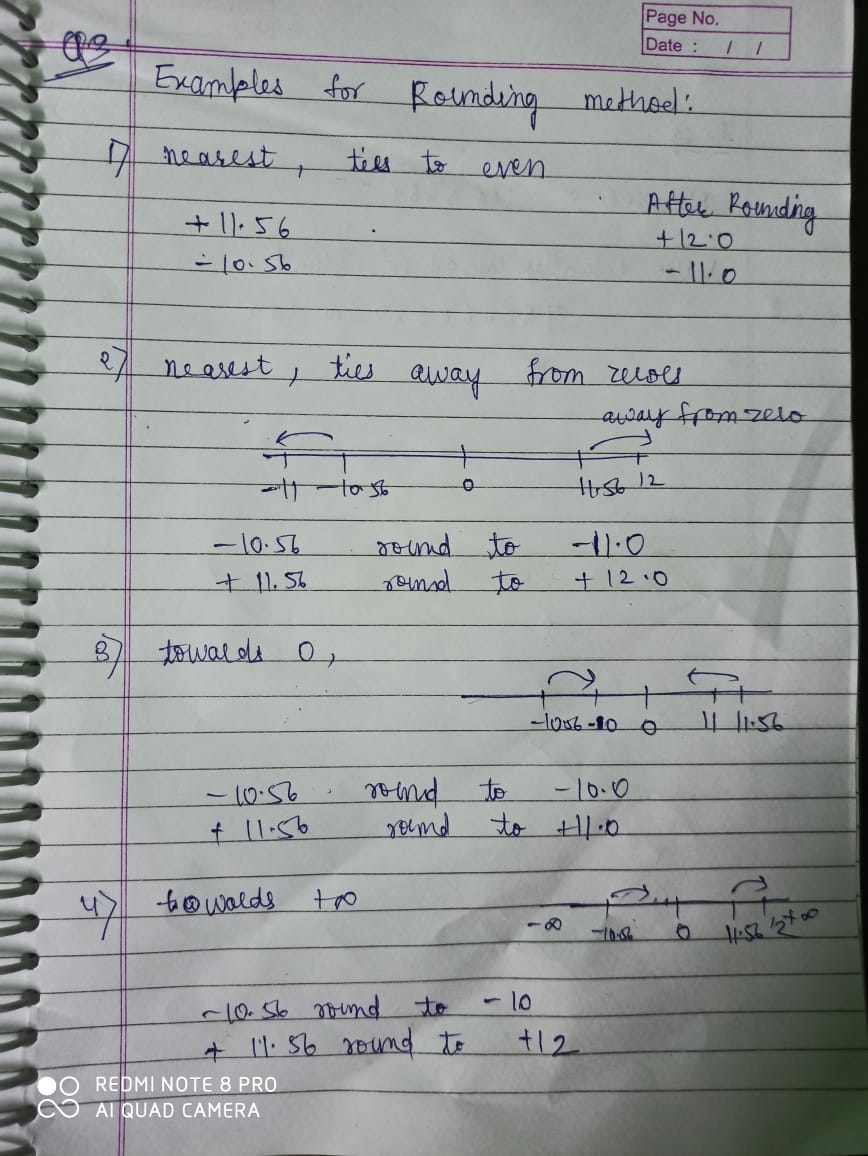 Page No.
Date : / /
Q3.
Examples for Rounding method:
1) nearest, ties to even
After Rounding
+11.56 +12.0
-10.56 -11.0
2) nearest, ties away from zeroes
away from zero
-11 -10.56 0 11.56 12
-10.56 round to -11.0
+11.56 round to +12.0
3) towards 0,
-10.56 -10 0 11 11.56
-10.56 round to -10.0
+11.56 round to +11.0
4) towards +∞
-∞ -10.56 0 11.56 12 +∞
-10.56 round to -10
+11.56 round to +12
REDMI NOTE 8 PRO
AI QUAD CAMERA